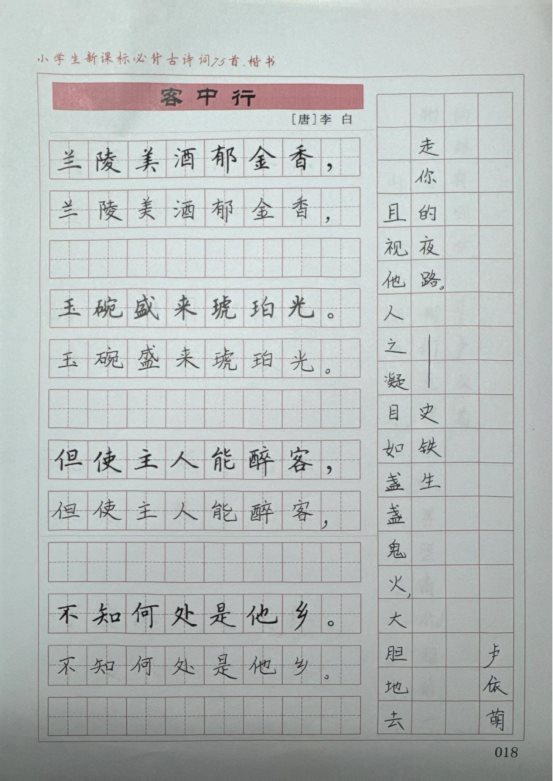 小学生新课标必背古诗词75首.楷书
客中行
[唐]李白
兰陵美酒郁金香，
兰陵美酒郁金香，
玉碗盛来琥珀光。
玉碗盛来琥珀光。
但使主人能醉客，
但使主人能醉客，
不知何处是他乡。
不知何处是他乡。
且视他人之凝目如盏盏鬼火，大胆地去
走你的夜路。——史铁生
卢依萌
018